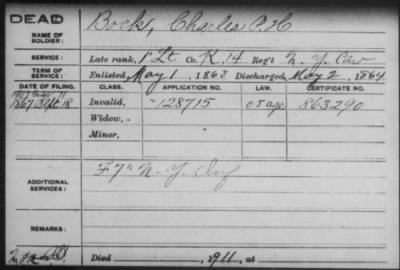 DEAD
NAME OF SOLDIER: Bock, Charles P. H
SERVICE: Late rank, 1" Lt Co. K, 14 Reg't N. Y. Cav
TERM OF SERVICE: Enlisted May 1, 1863 Discharged, May 2, 1864
DATE OF FILING. CLASS. APPLICATION NO. LAW. CERTIFICATE NO.
1867 Sept. 18 Invalid, 128715 863290
Widow,
Minor,
ADDITIONAL SERVICES: F 7" N. Y. Inf
REMARKS:
Died , 1911, at